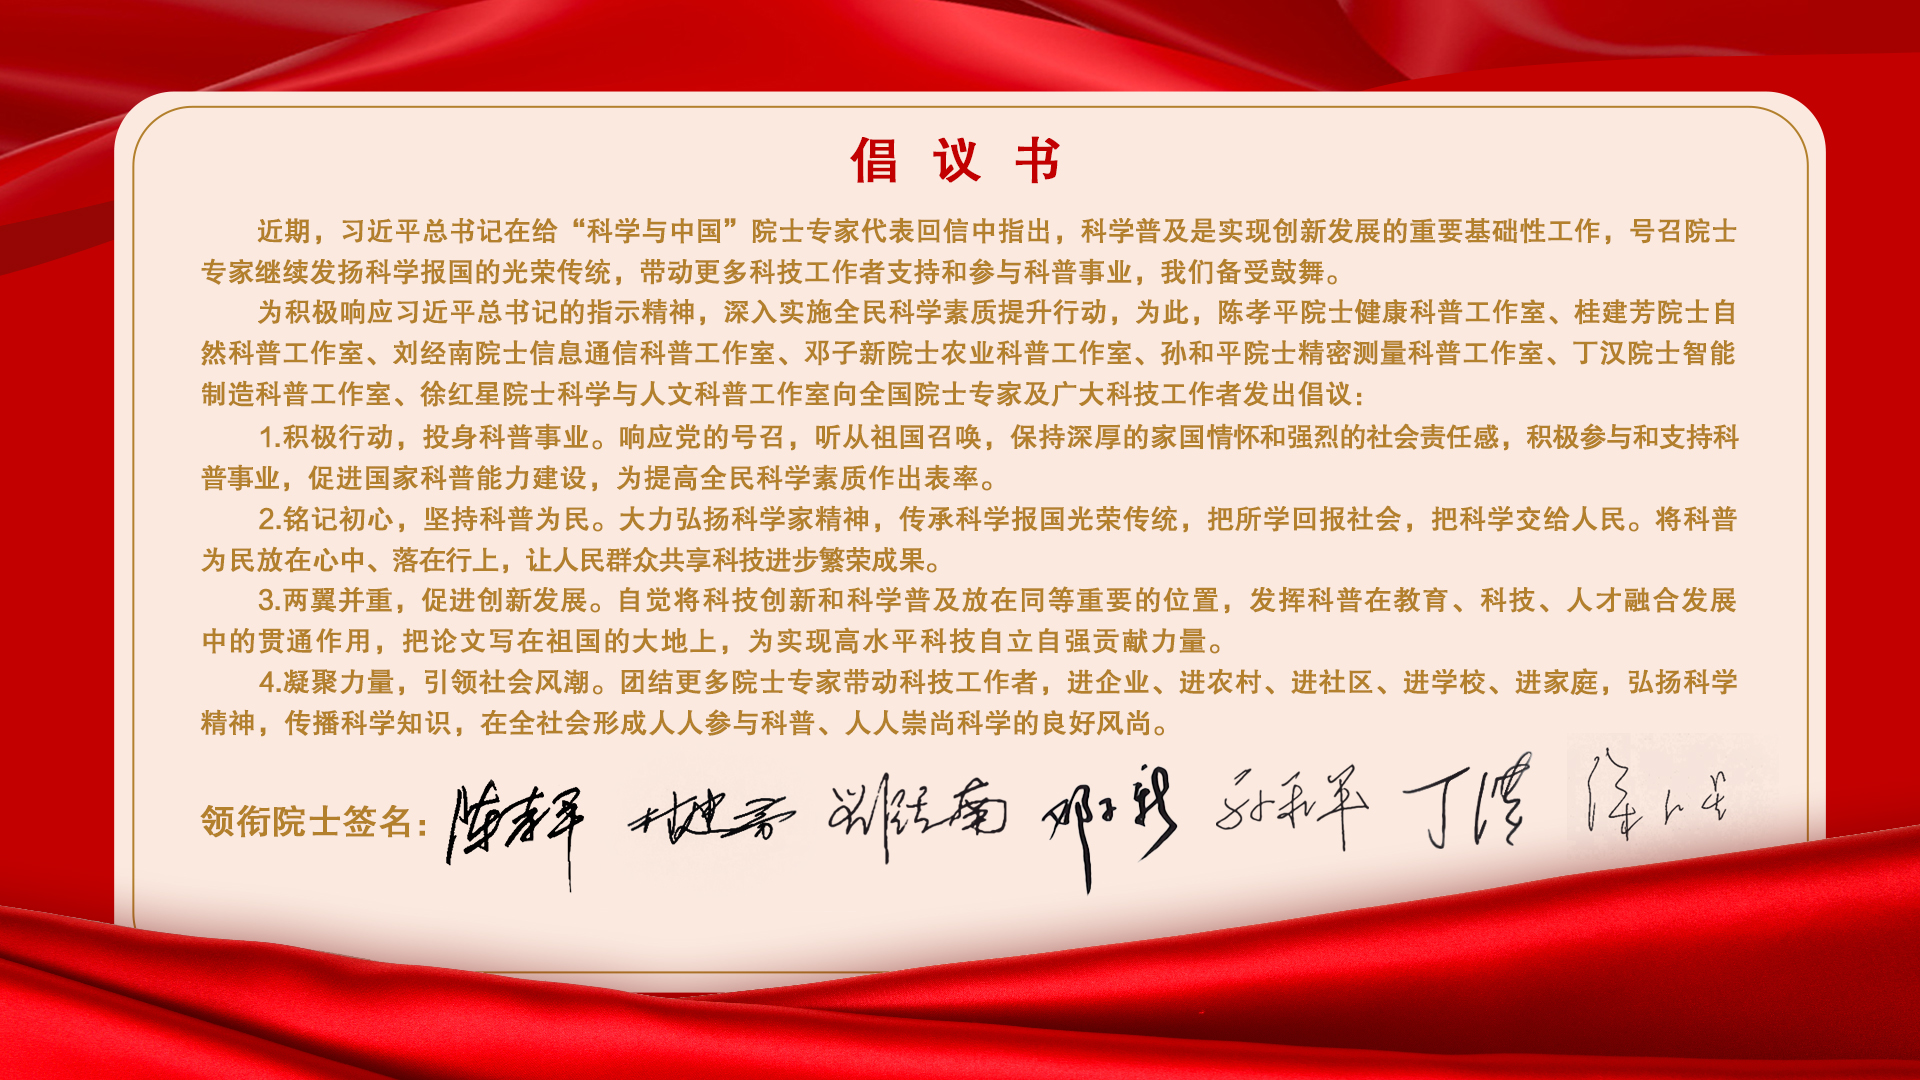 倡议书
近期，习近平总书记在给“科学与中国”院士专家代表回信中指出，科学普及是实现创新发展的重要基础性工作，号召院士
专家继续发扬科学报国的光荣传统，带动更多科技工作者支持和参与科普事业，我们备受鼓舞。
为积极响应习近平总书记的指示精神，深入实施全民科学素质提升行动，为此，陈孝平院士健康科普工作室、桂建芳院士自
然科普工作室、刘经南院士信息通信科普工作室、邓子新院士农业科普工作室、孙和平院士精密测量科普工作室、丁汉院士智能
制造科普工作室、徐红星院士科学与人文科普工作室向全国院士专家及广大科技工作者发出倡议：
1.积极行动，投身科普事业。响应党的号召，听从祖国召唤，保持深厚的家国情怀和强烈的社会责任感，积极参与和支持科
普事业，促进国家科普能力建设，为提高全民科学素质作出表率。
2.铭记初心，坚持科普为民。大力弘扬科学家精神，传承科学报国光荣传统，把所学回报社会，把科学交给人民。将科普
为民放在心中、落在行上，让人民群众共享科技进步繁荣成果。
3.两翼并重，促进创新发展。自觉将科技创新和科学普及放在同等重要的位置，发挥科普在教育、科技、人才融合发展
中的贯通作用，把论文写在祖国的大地上，为实现高水平科技自立自强贡献力量。
4.凝聚力量，引领社会风潮。团结更多院士专家带动科技工作者，进企业、进农村、进社区、进学校、进家庭，弘扬科学
精神，传播科学知识，在全社会形成人人参与科普、人人崇尚科学的良好风尚。
领衔院士签名：陈孝平 桂建芳 刘经南 邓子新 孙和平 丁汉 徐红星